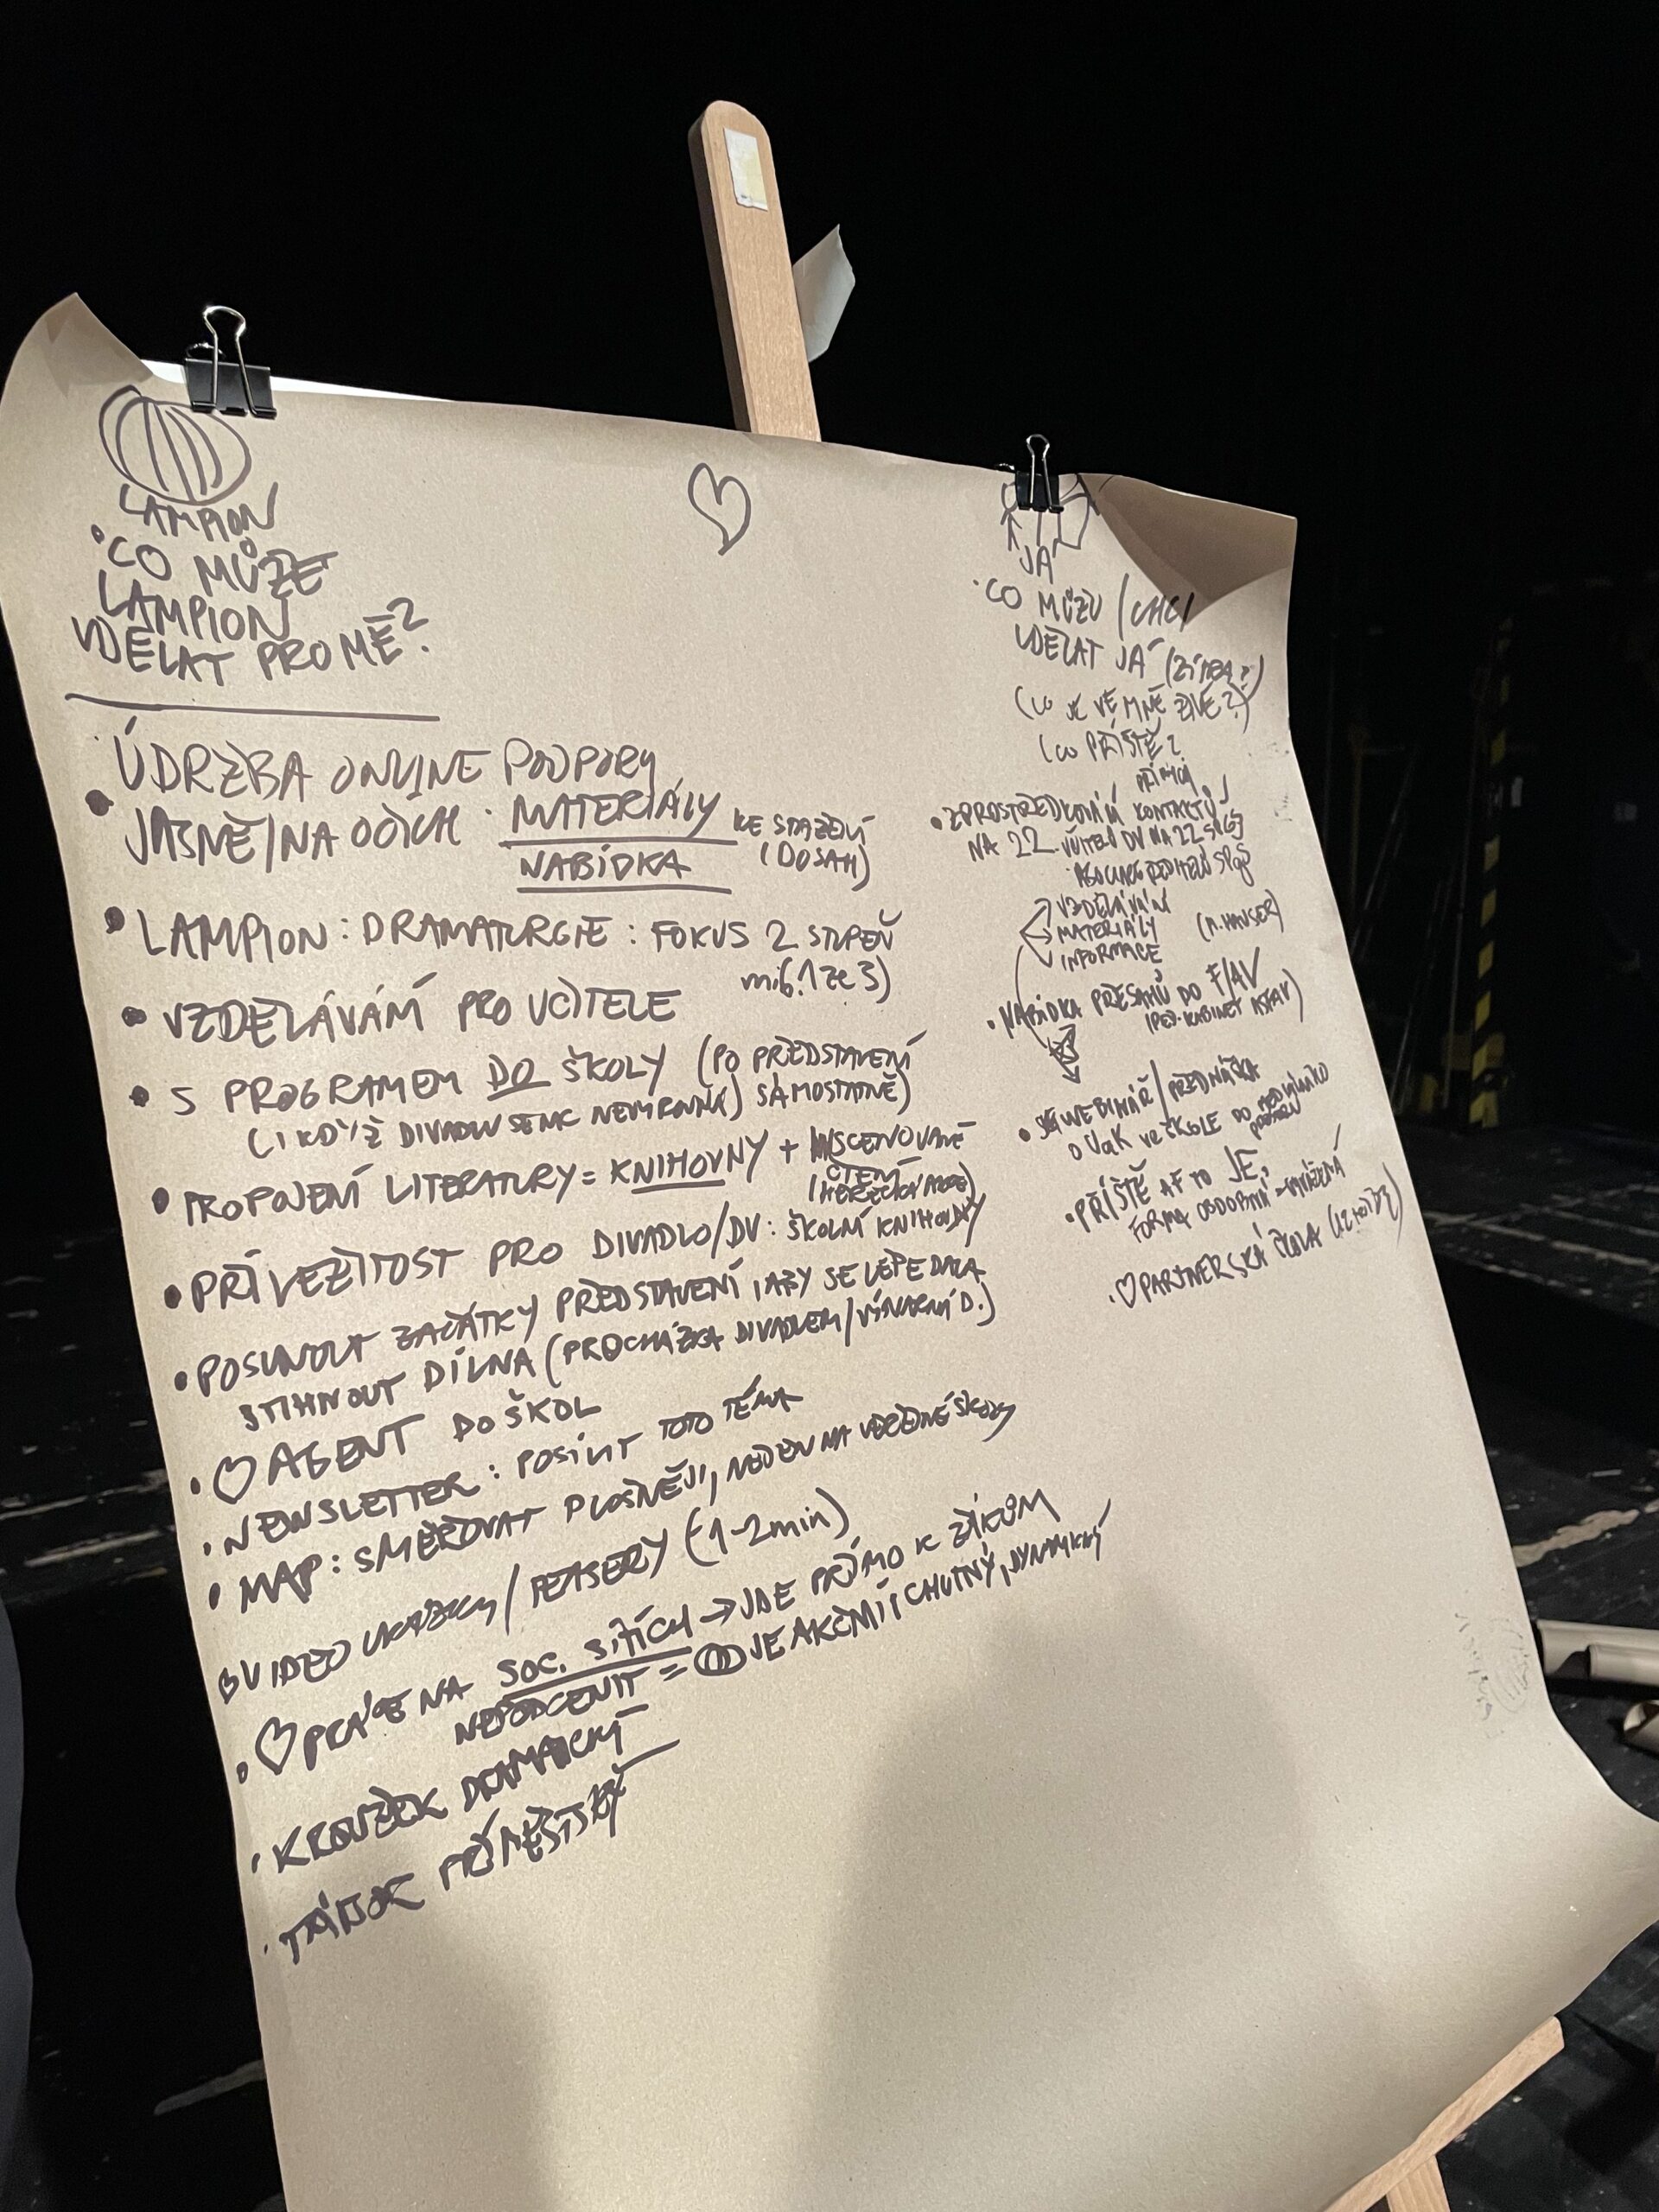 LAMPION
• CO MŮŽE
LAMPION
UDĚLAT PRO MĚ?
• ÚDRŽBA ONLINE PODPORY
JASNĚ/NA OČÍCH • MATERIÁLY KE STAŽENÍ
NABÍDKA (DOSAH)
• LAMPION: DRAMATURGIE: FOKUS 2 STUPEŇ
• VZDĚLÁVÁNÍ PRO UČITELE
• S PROGRAMEM DO ŠKOLY (PO PŘEDSTAVENÍ
(I KDYŽ DIVADLU SE NEVYROVNÁ) SAMOSTATNĚ)
• PROPOJENÍ LITERATURY = KNIHOVNY + INSCENOVANÉ
ČTENÍ
• PŘÍLEŽITOST PRO DIVADLO/DV: ŠKOLNÍ KNIHOVNY
• POSUNOUT ZAČÁTKY PŘEDSTAVENÍ, ABY SE LÉPE DALA
STIHNOUT DÍLNA (PROCHÁZKA DIVADLEM/VÝTVARNÁ D.)
• AGENT DO ŠKOL
• NEWSLETTER: POSÍLIT TOTO TÉMA
• MAP: SMĚŘOVAT PLOŠNĚJI, NEJEN NA VĚDĚNÉ ŠKOLY
VIDEO UKÁZKY/TEASERY (-1-2min)
• PRÁCE NA SOC. SÍTÍCH → JDE PŘÍMO K ŽÁKŮM
NEPODCENIT = JE AKČNÍ I CHUTNÝ, DYNAMICKÝ
• KROUŽEK DRAMATICKÝ
• TÁBOR PŘÍMĚSTSKÝ
JÁ
• CO MŮŽU/CHCI
UDĚLAT JÁ (ZÍTRA?)
(CO JE VE MNĚ ŽIVÉ?)
(CO PŘÍŠTĚ?
• ZPROSTŘEDKOVÁNÍ KONTAKTŮ
NA 22 UČITELŮ DV NA 22
ASOCIACE ŘEDITELŮ
VZDĚLÁVÁNÍ
MATERIÁLY
INFORMACE (M. HAUSER)
• NABÍDKA PŘESAHŮ DO F/AV
• WEBINÁŘ/PŘEDNÁŠKA
O VE ŠKOLE DO
• PŘÍŠTĚ AŤ TO JE,
FORMA OBDOBNÁ
• PARTNERSKÁ ŠKOLA